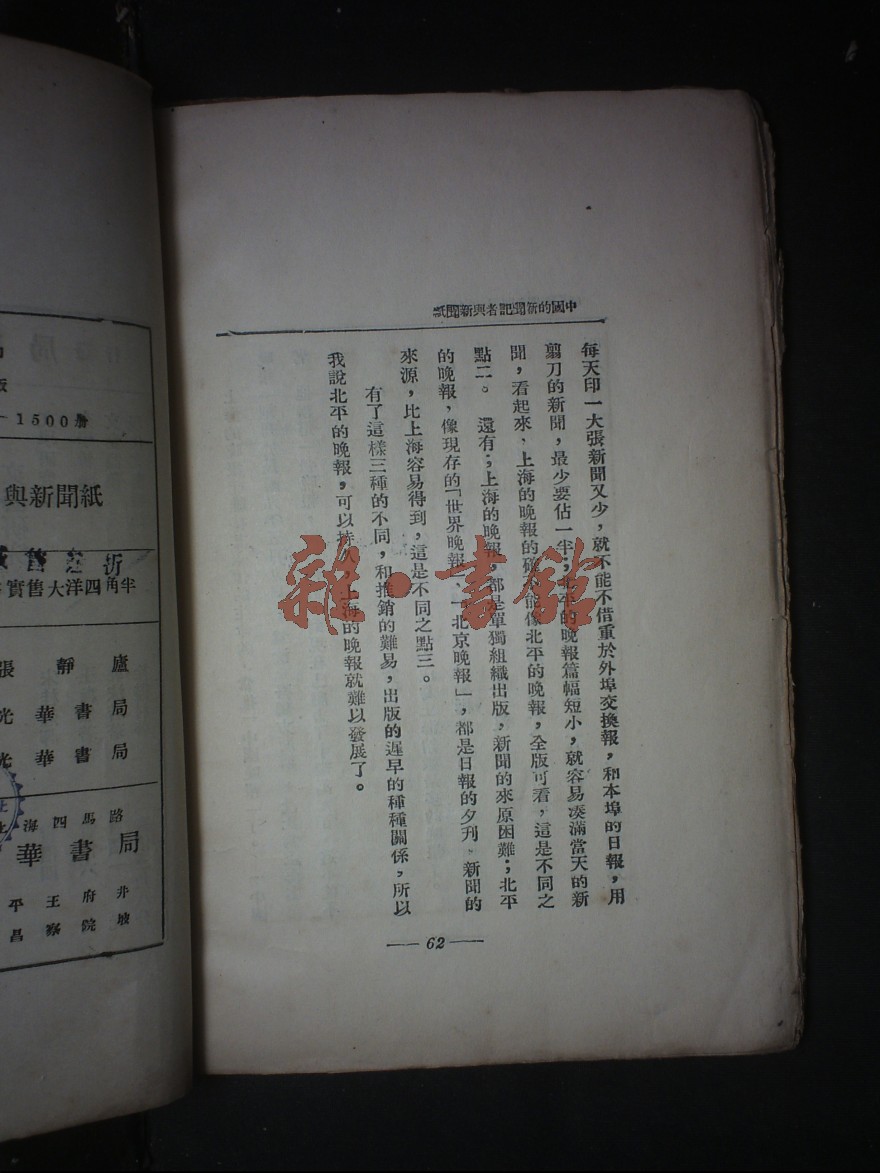 中國的新聞記者與新聞紙
每天印一大張新聞又少，就不能不借重於外埠交換報，和本埠的日報，用
翦刀的新聞，最少要佔一半；北平的晚報篇幅短小，就容易湊滿當天的新
聞，看起來，上海的晚報的確不能像北平的晚報，全版可看，這是不同之
點二。　還有；上海的晚報，都是單獨組織出版，新聞的來原困難；北平
的晚報，像現存的「世界晚報」、「北京晚報」，都是日報的夕刊。新聞的
來源，比上海容易得到，這是不同之點三。
有了這樣三種的不同，和推銷的難易，出版的遲早的種種關係，所以
我說北平的晚報，可以持久，上海的晚報就難以發展了。
—— 62 ——
雜·書館
版
—1500册
與新聞紙
折
實售大洋四角半
張靜廬
光華書局
光華書局
海四馬路
華書局
平王府井
昌察院坡